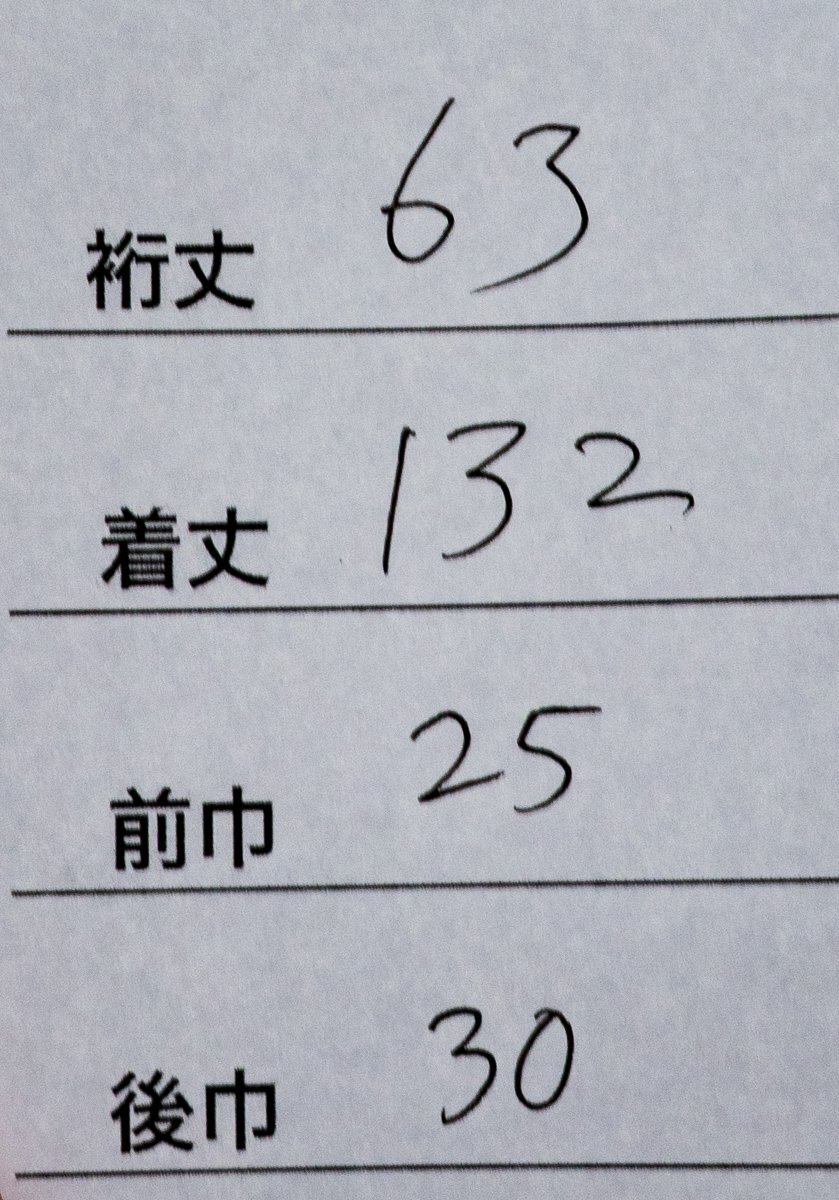 裄丈 63
着丈 132
前巾 25
後巾 30